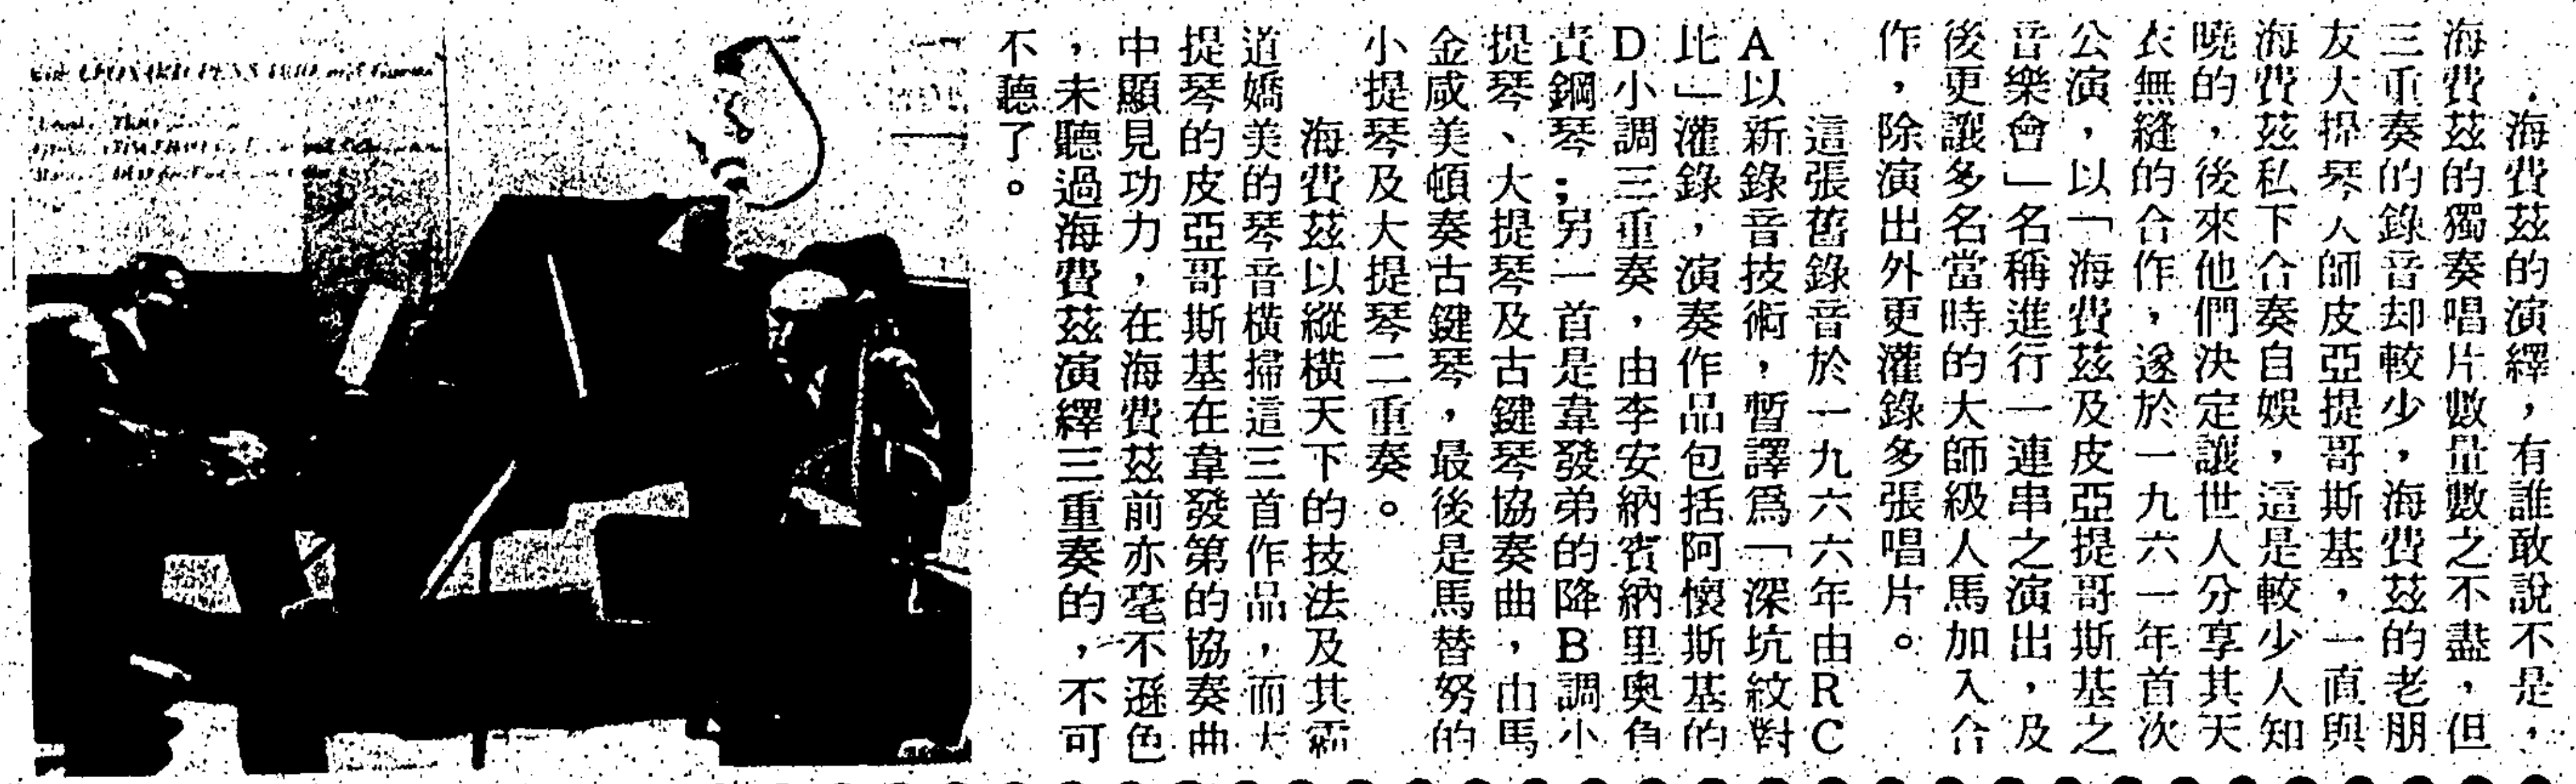 海費茲的演繹，有誰敢說不是，
海費茲的獨奏唱片數量數之不盡，但
三重奏的錄音却較少，海費茲的老朋
友大提琴大師皮亞提哥斯基，一直與
海費茲私下合奏自娛，這是較少人知
曉的，後來他們決定讓世人分享其天
衣無縫的合作，遂於一九六一年首次
公演，以「海費茲及皮亞提哥斯基之
音樂會」名稱進行一連串之演出，及
後更讓多名當時的大師級人馬加入合
作，除演出外更灌錄多張唱片。
這張舊錄音於一九六六年由RC
A以新錄音技術，暫譯爲「深坑紋對
比」灌錄，演奏作品包括阿懷斯基的
D小調三重奏，由李安納賓納里奧負
責鋼琴；另一首是韋發弟的降B調小
提琴、大提琴及古鍵琴協奏曲，由馬
金咸美頓奏古鍵琴，最後是馬替努的
小提琴及大提琴二重奏。
海費茲以縱橫天下的技法及其霸
道嬌美的琴音橫掃這三首作品，而大
提琴的皮亞哥斯基在韋發第的協奏曲
中顯見功力，在海費茲前亦毫不遜色
，未聽過海費茲演繹三重奏的，不可
不聽了。